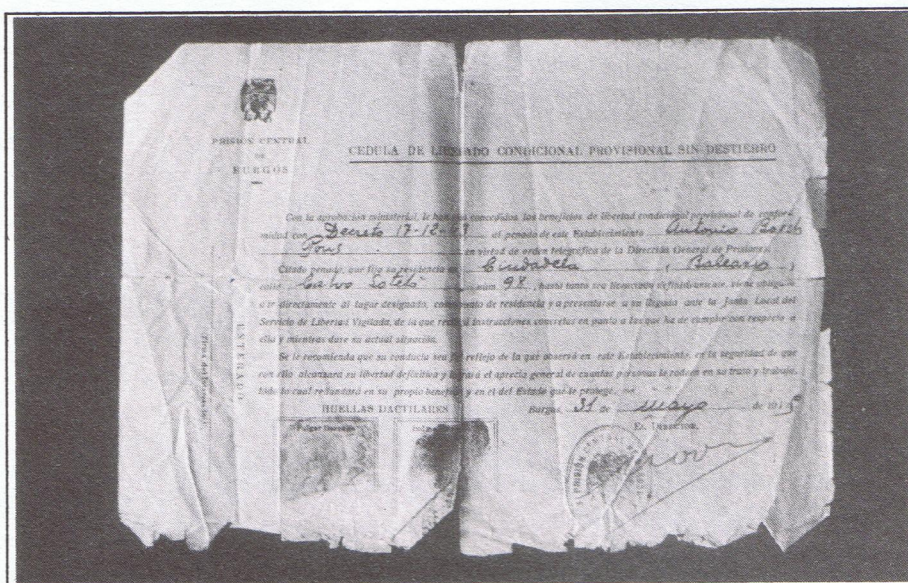 PRISION CENTRAL
DE
BURGOS
CEDULA DE LIBERADO CONDICIONAL PROVISIONAL SIN DESTIERRO
Con la aprobación ministerial, le han sido concedidos los beneficios de libertad condicional provisional de confor
midad con Decreto 17-12-43 al penado de este Establecimiento Antonio
Pons en virtud de orden telegráfica de la Dirección General de Prisiones.
Citado penado, que fija su residencia en Ciudadela, Baleares,
calle Calvo Sotelo núm 98, hasta tanto sea licenciado definitivamente, viene obligado
a ir directamente al lugar designado, como punto de residencia y a presentarse a su llegada ante la Junta Local del
Servicio de Libertad Vigilada, de la que recibirá instrucciones concretas en punto a los que ha de cumplir con respecto a
ella y mientras dure su actual situación.
Se le recomienda que su conducta sea fiel reflejo de la que observó en este Establecimiento, en la seguridad de que
con ello alcanzará su libertad definitiva y logrará el aprecio general de cuantas personas le rodeen en su trato y trabajo,
todo lo cual redundará en su propio beneficio y en el del Estado que le protege.
HUELLAS DACTILARES
Burgos, 31 de mayo de 194
EL DIRECTOR,
Pulgar
PRISION CENTRAL